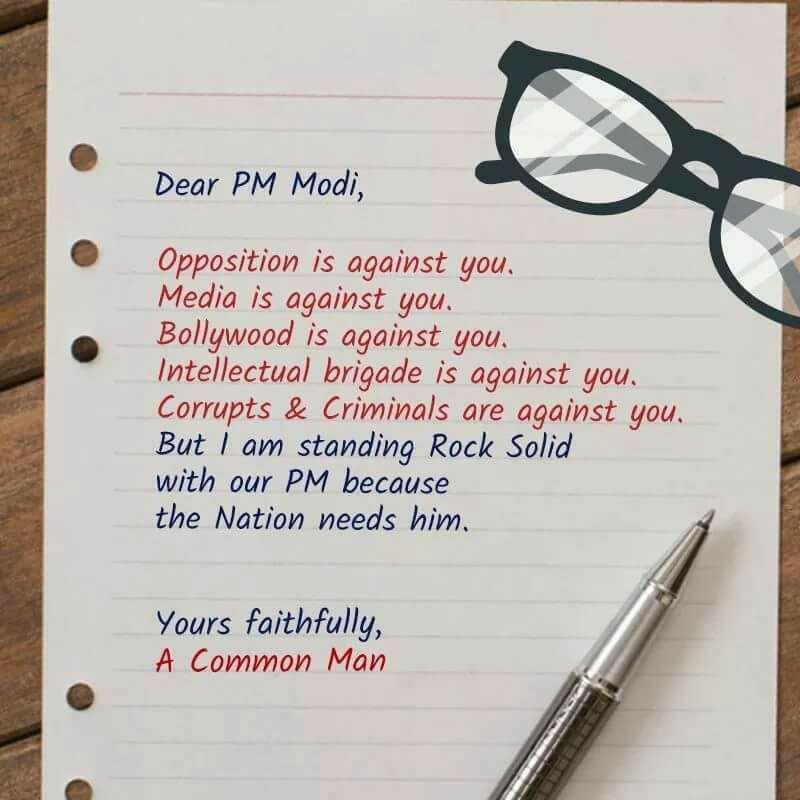 Dear PM Modi,
Opposition is against you.
Media is against you.
Bollywood is against you.
Intellectual brigade is against you.
Corrupts & Criminals are against you.
But I am standing Rock Solid
with our PM because
the Nation needs him.
Yours faithfully,
A Common Man